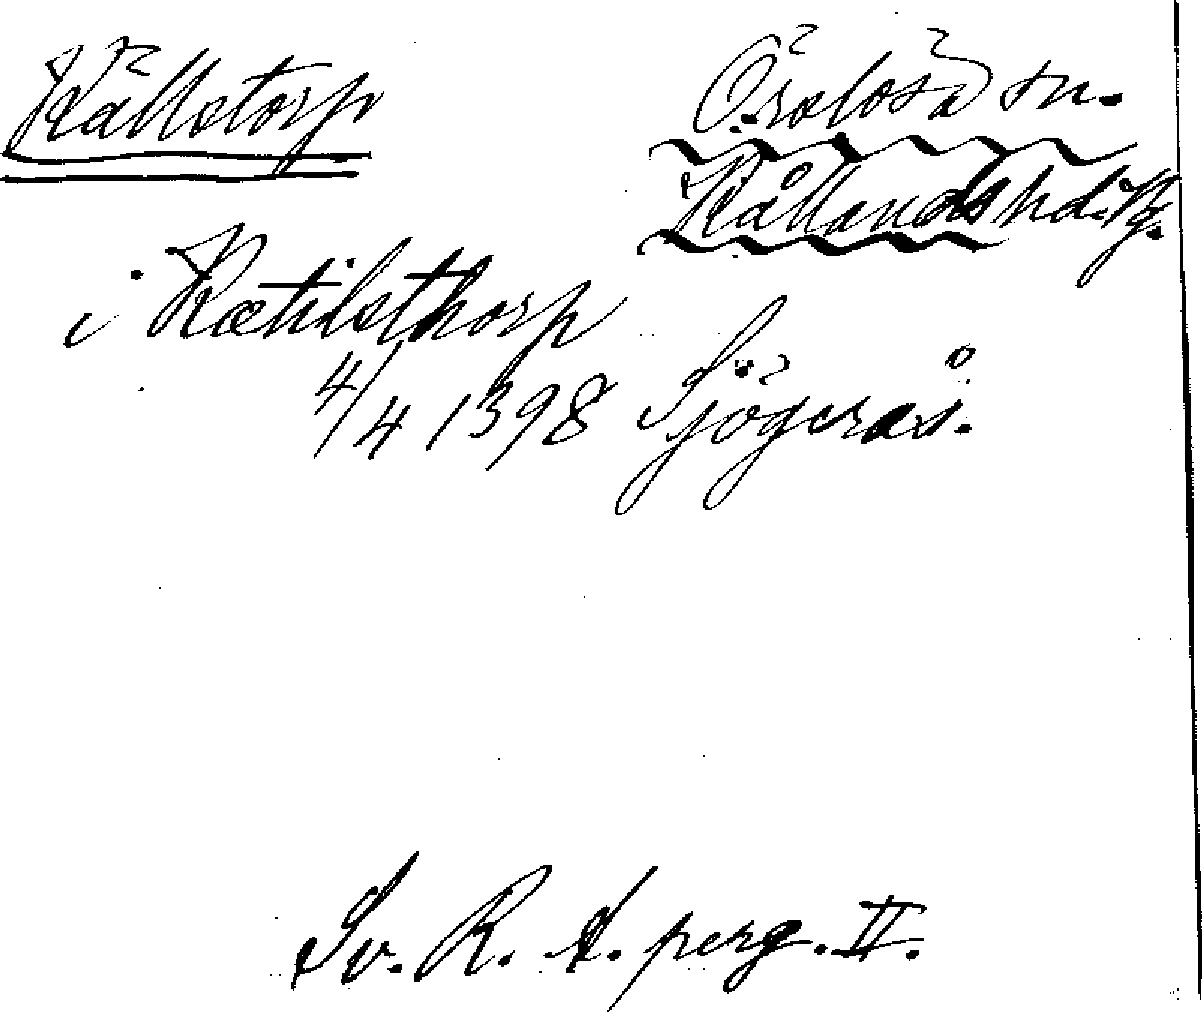 Källstorp
Örslösa sn.
Kållands hd. Vg.
i Kætilsthorp
4/4 1398 Sjögerås.
Sv. R. A. perg. II.